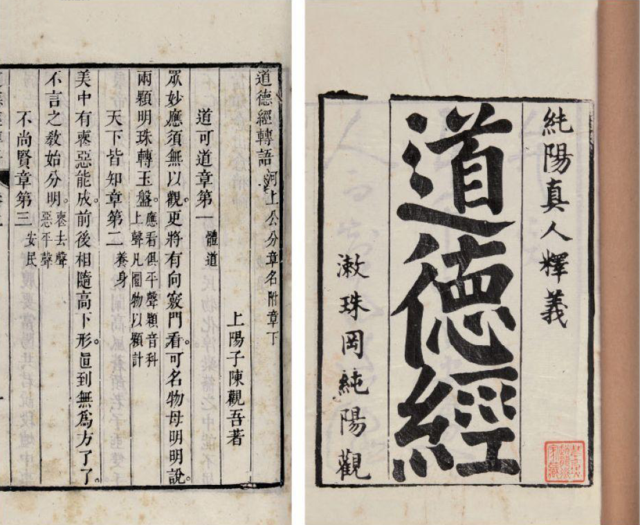 純陽真人釋義
道德經
漱珠岡純陽觀
道德經轉語 河上公分章名附章下
上陽子陳觀吾著
道可道章第一 體道
衆妙應須無以觀。更將有向竅門看。可名物母明明說。
兩顆明珠轉玉盤。應看俱平聲顆音科上聲凡圓物以顆計
天下皆知章第二 養身
美中有喪惡能成。前後相隨高下形。直到無爲方了了。
不言之教始分明。喪去聲惡平聲
不尚賢章第三 安民